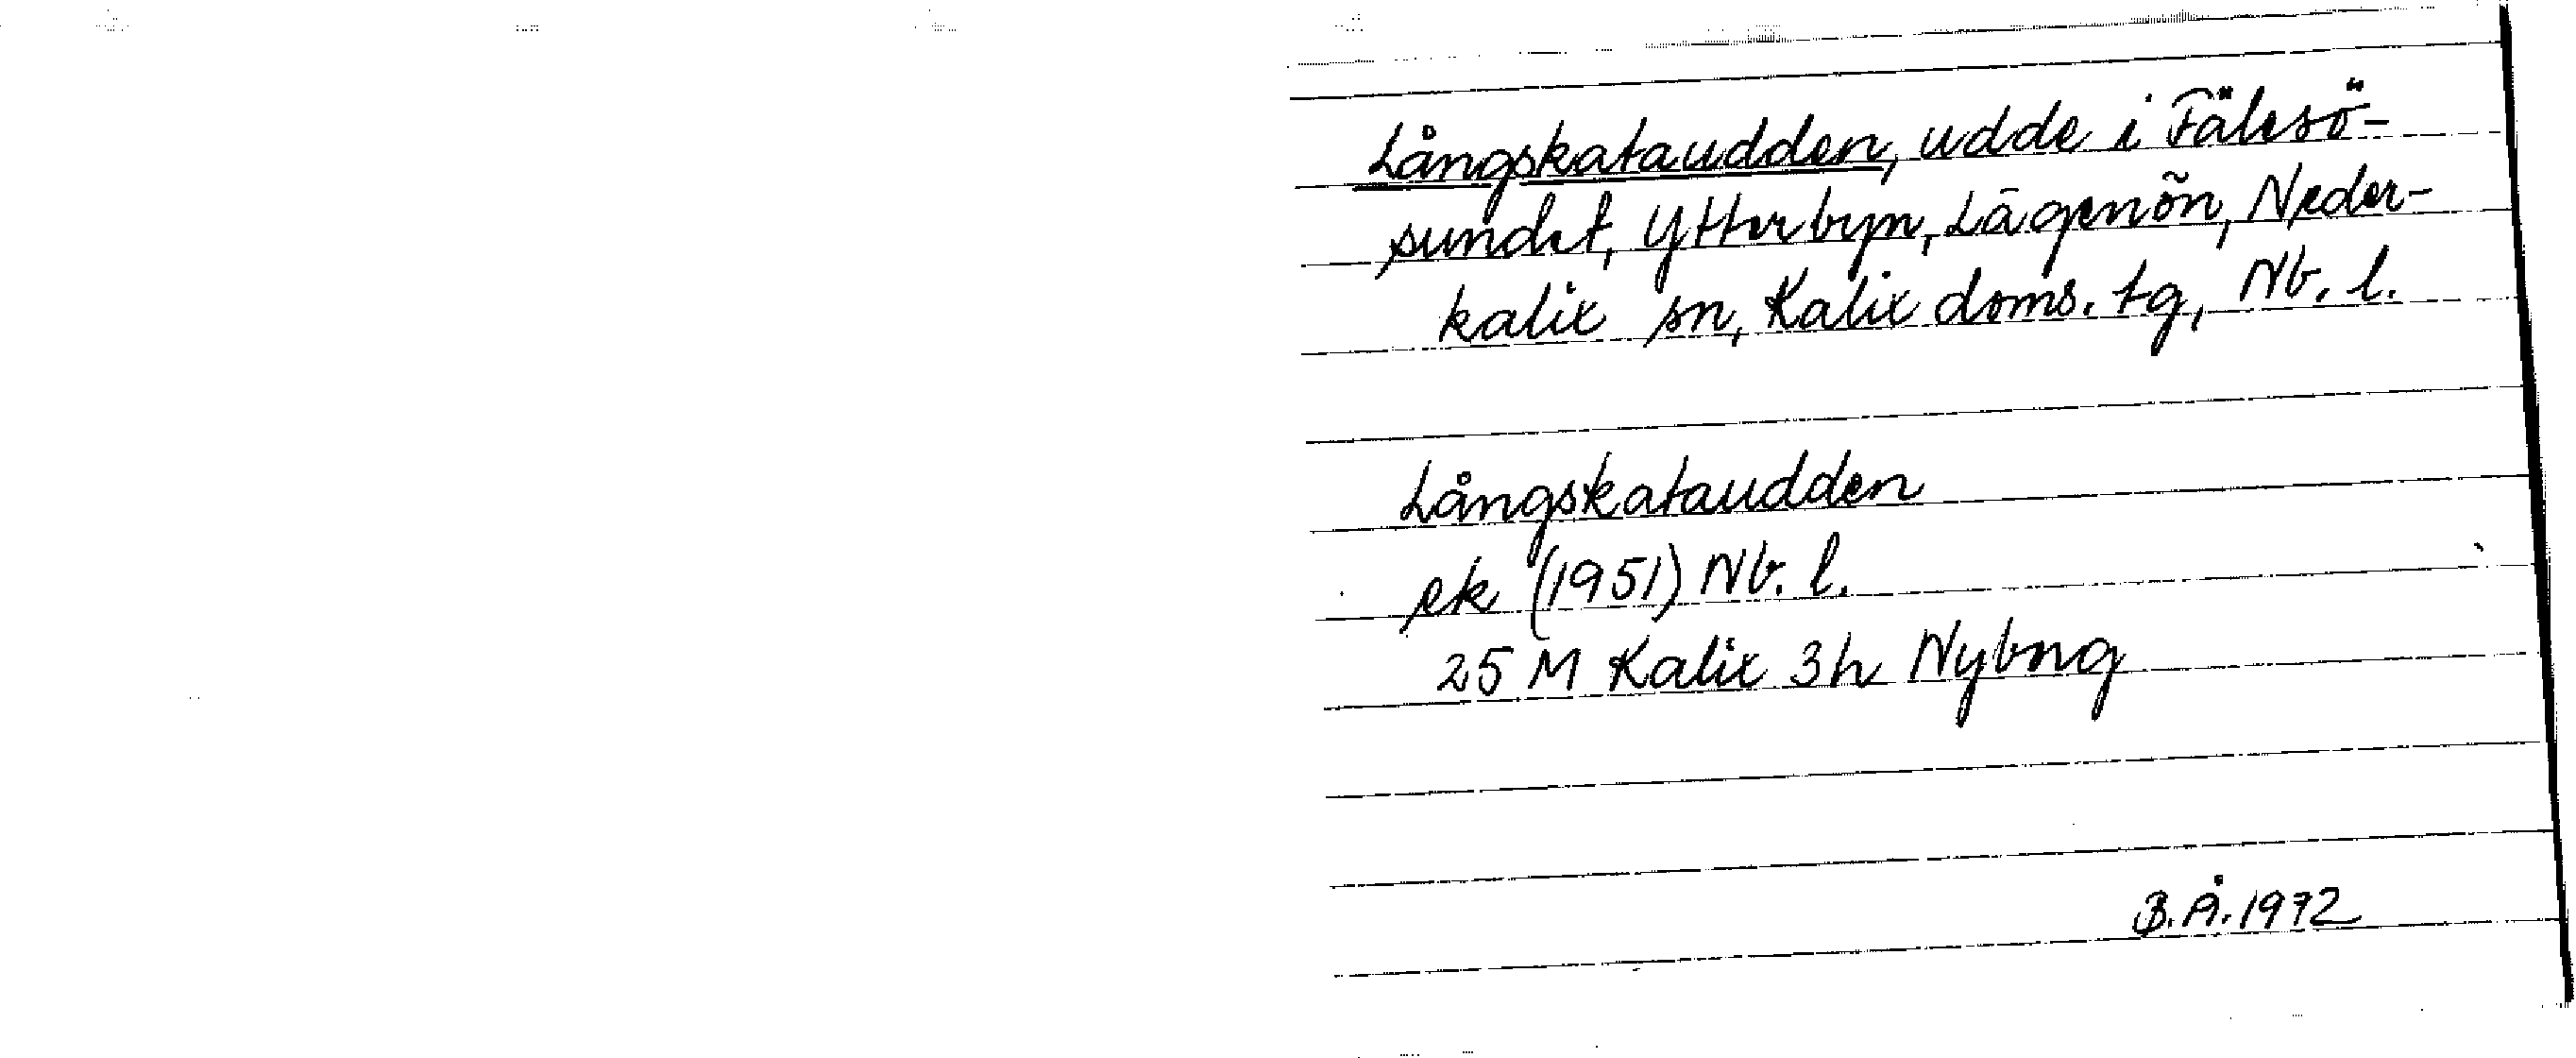 Långskataudden, udde i Fälesö-
sundet, Ytterbyn, Lågenön, Neder-
kalix sn, Kalix doms. tg, Nb. l.
Långskataudden
ek (1951) Nb. l.
25 M Kalix 3h Nyborg
B.Å. 1972